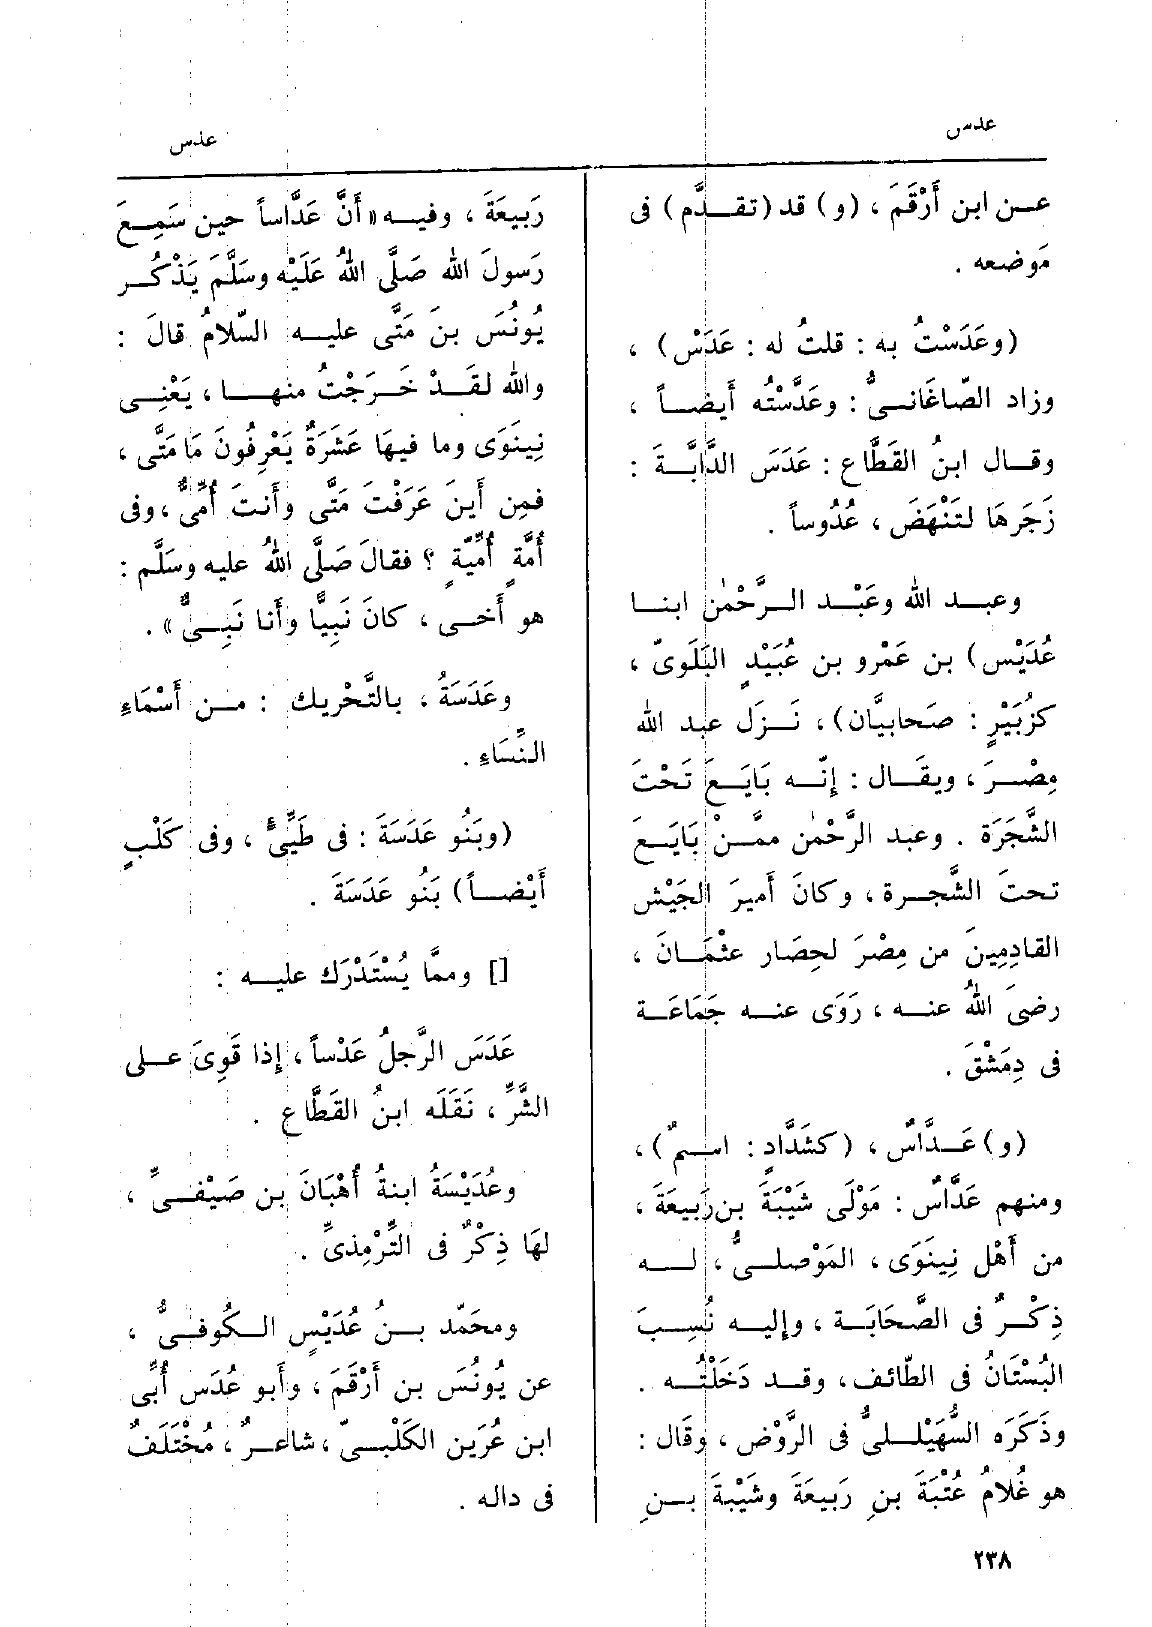 عدس
عدس
عــن ابن أَرْقَمَ ، (و) قد (تقــدَّم) فى
مَوضعه .
(وعَدَسْتُ به : قلتُ له : عَدَسْ) ،
وزاد الصّاغَانــىُّ : وعَدَّسْتُه أَيضــاً ،
وقــال ابنُ القَطَّاع : عَدَسَ الدَّابَّــةَ :
زَجَرهَا لتَنْهَضَ ، عُدُوساً .
وعبــد الله وعَبْــد الــرَّحْمٰن ابنــا
عُدَيْس) بن عَمْرو بن عُبَيْدٍ البَلَوىّ ،
كزُبَيْرٍ : صَحابيَّان) ، نَــزَل عبد الله
مِصْــرَ ، ويقَــال : إِنّــه بَايَــعَ تَحْتَ
الشَّجَرَة . وعبد الرَّحْمٰن ممَّــنْ بَايَــعَ
تحتَ الشَّجــرة ، وكانَ أَميرَ الجَيْش
القادِمِينَ من مِصْرَ لحِصَار عثْمَــانَ ،
رضىَ اللهُ عنــه ، رَوَى عنــه جَمَاعَــة
فى دِمَشْقَ .
(و) عَــدَّاسٌ ، (كشَدَّادٍ : اســمٌ) ،
ومنهم عَدَّاسٌ : مَوْلَى شَيْبَةَ بن رَبيعَةَ ،
من أَهْل نِينَوَى ، المَوْصلــىُّ ، لــه
ذِكْــرٌ فى الصَّحَابَــة ، وإِليــه نُسِــبَ
البُسْتَانُ فى الطّائف ، وقــد دَخَلْتُــه .
وذَكَرَه السُّهَيْلــلىُّ فى الرَّوْض ، وقَال :
هو غُلَامُ عُتْبَةَ بنِ رَبيعَةَ وشَيْبَةَ بــنِ
رَبيعَةَ ، وفيــه « أَنَّ عَدَّاساً حين سَمِــعَ
رَسولَ الله صَلَّى اللهُ عَلَيْه وسَلَّمَ يَذْكُــر
يُونُسَ بنَ مَتَّى عليــه السّلامُ قالَ :
والله لقَــدْ خَــرَجْتُ منهــا ، يَعْنِــى
نِينَوَى وما فيهَا عَشَرَةٌ يَعْرِفُونَ مَا مَتَّى ،
فمِن أَينَ عَرَفْتَ مَتَّى وأَنتَ أُمِّىٌّ ، وفى
أُمَّةٍ أُمِّيّةٍ ؟ فقالَ صَلَّى اللهُ عليه وسَلَّم :
هو أَخــى ، كانَ نَبِيًّا وأَنا نَبِــىٌّ » .
وعَدَسَةُ ، بالتَّحْريك : مــن أَسْمَاءِ
النِّسَاءِ .
(وبَنُو عَدَسَةَ : فى طَيِّئٍ ، وفى كَلْبٍ
أَيْضــاً) بَنُو عَدَسَةَ .
[] وممَّا يُسْتَدْرَك عليــه :
عَدَسَ الرَّجلُ عَدْساً ، إِذا قَوِىَ علــى
الشَّرِّ ، نَقَلَه ابنُ القَطَّاع .
وعُدَيْسَةُ ابنةُ أُهْبَانَ بن صَيْفــىٍّ ،
لهَا ذِكْرٌ فى التِّرْمِذىِّ .
ومحَمّد بــنُ عُدَيْسٍ الــكُوفــىُّ ،
عن يُونُسَ بن أَرْقَمَ ، وأَبو عُدَس أُبَىّ
ابن عُرَين الكَلْبــىّ ، شاعــرٌ ، مُخْتَلَفٌ
فى داله .
٢٣٨